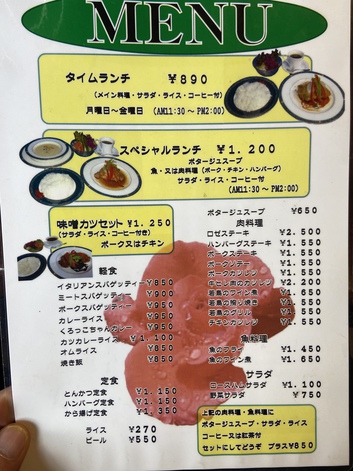 MENU
タイムランチ ￥890
(メイン料理・サラダ・ライス・コーヒー付)
月曜日～金曜日 (AM11:30～PM2:00)
スペシャルランチ ￥1.200
ポタージュスープ
魚・又は肉料理(ポーク・チキン・ハンバーグ)
サラダ・ライス・コーヒー付
(AM11:30～PM2:00)
味噌カツセット￥1.250
(サラダ・ライス・コーヒー付き)
ポーク又はチキン
軽食
イタリアンスパゲッティー￥850
ミートスパゲッティー ￥900
ポークスパゲッティー ￥950
カレーライス ￥950
くろっこちゃんカレー ￥950
カツカレーライス ￥1.100
オムライス ￥850
焼き飯 ￥850
定食
とんかつ定食 ￥1.150
ハンバーグ定食 ￥1.150
から揚げ定食 ￥1.350
ライス ￥270
ビール ￥550
ポタージュスープ ￥650
肉料理
ロゼステーキ ￥2.500
ハンバーグステーキ ￥1.550
ポークステーキ ￥1.550
ポークソテー ￥1.550
ポークカツレツ ￥1.550
牛ヒレ肉のカツレツ ￥2.200
若鳥のワイン煮 ￥1.650
若鳥の照り焼き ￥1.550
若鳥のグリル ￥1.550
チキンカツレツ ￥1.550
魚料理
魚のフライ ￥1.450
魚のワイン煮 ￥1.650
サラダ
ロースハムサラダ ￥1.100
野菜サラダ ￥750
上記の肉料理・魚料理に
ポタージュスープ・サラダ・ライス
コーヒー又は紅茶付
セットにしてどうぞ プラス￥850